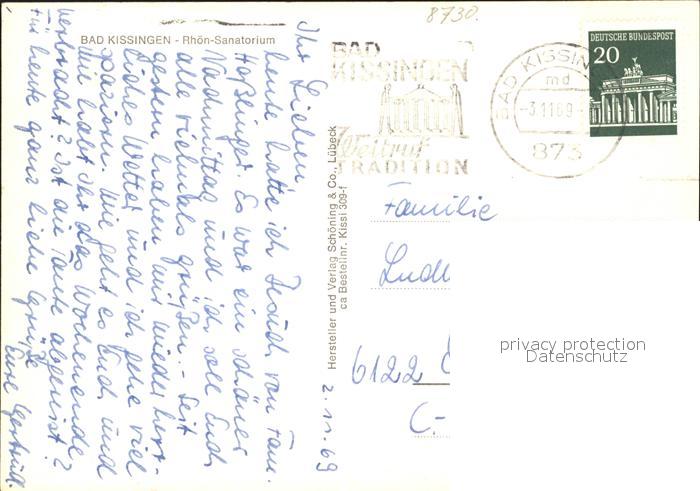 8730.
BAD KISSINGEN - Rhön-Sanatorium
BAD
KISSINGEN
Weltruf
TRADITION
BAD KISSIN
md
-3.1169-
873
DEUTSCHE BUNDESPOST
20
2. 11. 69
Ihr Lieben,
heute hatte ich Besuch von Fam.
Es war ein schöner
Nachmittag und ich soll Euch
alle vielmals grüßen. - Seit
gestern haben wir wieder herr-
liches Wetter und ich gehe viel
spazieren. Wie geht es Euch und
wie habt Ihr das Wochenende
verbracht? Ist die Tante abgereist?
Für heute ganz liebe Grüße
Eure Gertrud.
Hersteller und Verlag Schöning & Co., Lübeck
ca Bestellnr. Kissi 309-f
Familie
6122
privacy protection
Datenschutz